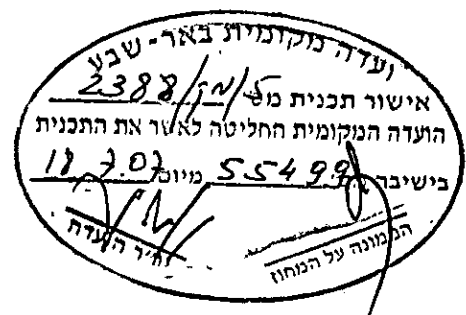 ועדה מקומית באר-שבע
אישור תכנית מס 5/מק/2388
הועדה המקומית החליטה לאשר את התכנית
בישיבה 55499 מיום 18.7.07
יו״ר הועדה
הממונה על המחוז